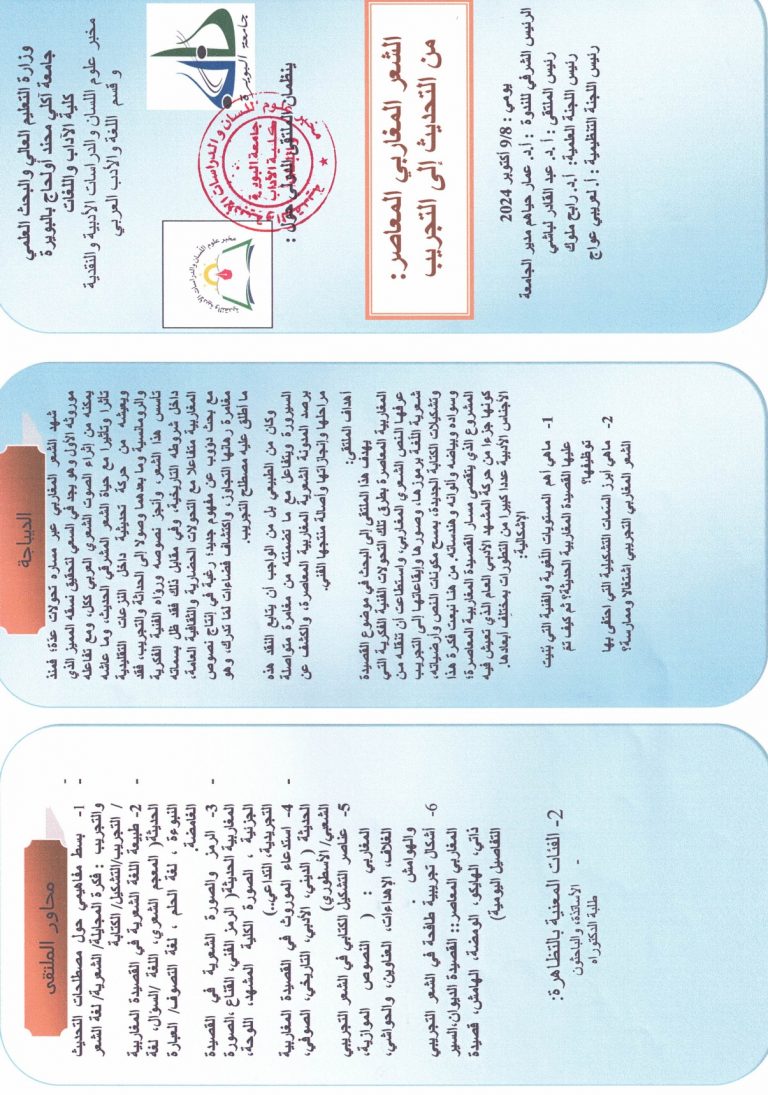 وزارة التعليم العالي والبحث العلمي
جامعة آكلي محند أولحاج بالبويرة
كلية الآداب واللغات
مخبر علوم اللسان والدراسات الأدبية والنقدية
و قسم اللغة والأدب العربي
جامعة البويرة
ينظمان الملتقى الدولي حول :
الشعر المغاربي المعاصر:
من التحديث إلى التجريب
يومي : 9/8 أكتوبر 2024
الرئيس الشرفي للندوة : أ.د. عمار حياهم مدير الجامعة
رئيس الملتقى : أ.د. عبد القادر لباشي
رئيس اللجنة العلمية: أ.د. رابح ملوك
رئيس اللجنة التنظيمية : أ. لعريبي عواج
الديباجة
شهد الشعر المغاربي عبر مساره تحولات عدة؛ فمنذ
موروثه الأول وهو يجد في السعي لتحقيق نسقه المميز الذي
يمكنه من إثراء الصوت الشعري العربي ككل، ومع تفاعله
تأثرا وتأثيرا مع حياة الشعر المشرقي الحديث، وما عاشه
ويعيشه من حركة تحديثية داخل النزعات التقليدية
والرومنسية وما بعدهما وصولا إلى الحداثة والتجريب، فقد
تأسس هذا الشعر، وأنجز نصوصه ورؤاه الفنية الفكرية
داخل شروطه التاريخية، وفي مقابل ذلك فقد ظل بسماته
المغاربية متفاعلا مع التحولات الحضارية والثقافية العامة،
مع بحث دؤوب عن مفهوم جديد؛ رغبة في إنتاج نصوص
مغامرة، رهانها التجاوز، واكتشاف فضاءات لما تدرك، وهو
ما أطلق عليه مصطلح التجريب.
وكان من الطبيعي بل من الواجب أن يتابع النقد هذه
السيرورة ويتفاعل مع ما تضمنته من مغامرة متواصلة
برصد المدونة الشعرية المغاربية المعاصرة، والكشف عن
مراحلها وإنجازاتها وأصالة منتجها الفني.
أهداف الملتقى:
يهدف هذا الملتقى إلى البحث في موضوع القصيدة
المغاربية المعاصرة بطرق تلك التحولات الفنية الفكرية التي
عرفها النص الشعري المغاربي، واستطاعت أن تنقله من
شعرية اللغة برموزها، وصورها وإيقاعاتها إلى التجريب
وتشكيلات الكتابة الجديدة، بمسح مكونات النص وأرضياته،
وسواده وبياضه وألوانه وهندساته. من هنا نبعت فكرة هذا
المشروع الذي يتقصى مسار القصيدة المغاربية المعاصرة؛
كونها جزءا من حركة المشهد الأدبي العام الذي تعيش فيه
الأجناس الأدبية عددا كبيرا من التطورات بمختلف أبعادها.
الإشكالية:
1- ماهي أهم المستويات اللغوية والفنية التي بنيت
عليها القصيدة المغاربية الحديثة؟ ثم كيف تم
توظيفها؟
2- ماهي أبرز السمات التشكيلية التي احتفى بها
الشعر المغاربي التجريبي اشتغالا وممارسة؟
محاور الملتقى
1- بسط مفاهيمي حول مصطلحات التحديث
والتجريب : فكرة المجايلة/ الشعرية/ لغة الشعر
/ التجريب/التشكيل/ الكتابة
2- طبيعة اللغة الشعرية في القصيدة المغاربية
الحديثة( المعجم الشعري، اللغة /السؤال، لغة
النبوءة ، لغة الحلم ، لغة التصوف/ العبارة
الغامضة.
3- الرمز والصورة الشعرية في القصيدة
المغاربية الحديثة( الرمز الفني، القناع ،الصورة
الجزئية ، الصورة الكلية المشهد، اللوحة،
التجريدية، التداعي..)
4- استدعاء الموروث في القصيدة المغاربية
الحديثة ( الديني، الأدبي، التاريخي، الصوفي،
الشعبي/ الأسطوري)
5- عناصر التشكيل الكتابي في الشعر التجريبي
المغاربي : ( النصوص الموازية،
الغلاف، الإهداءات، العناوين، والحواشي،
والهوامش .
6- أشكال تجريبية طافحة في الشعر التجريبي
المغاربي المعاصر:: القصيدة الديوان،السير
ذاتي، الهايكو، الومضة، الهامش، قصيدة
التفاصيل اليومية)
2- الفئات المعنية بالتظاهرة:
- الأساتذة، والباحثون
طلبة الدكتوراه